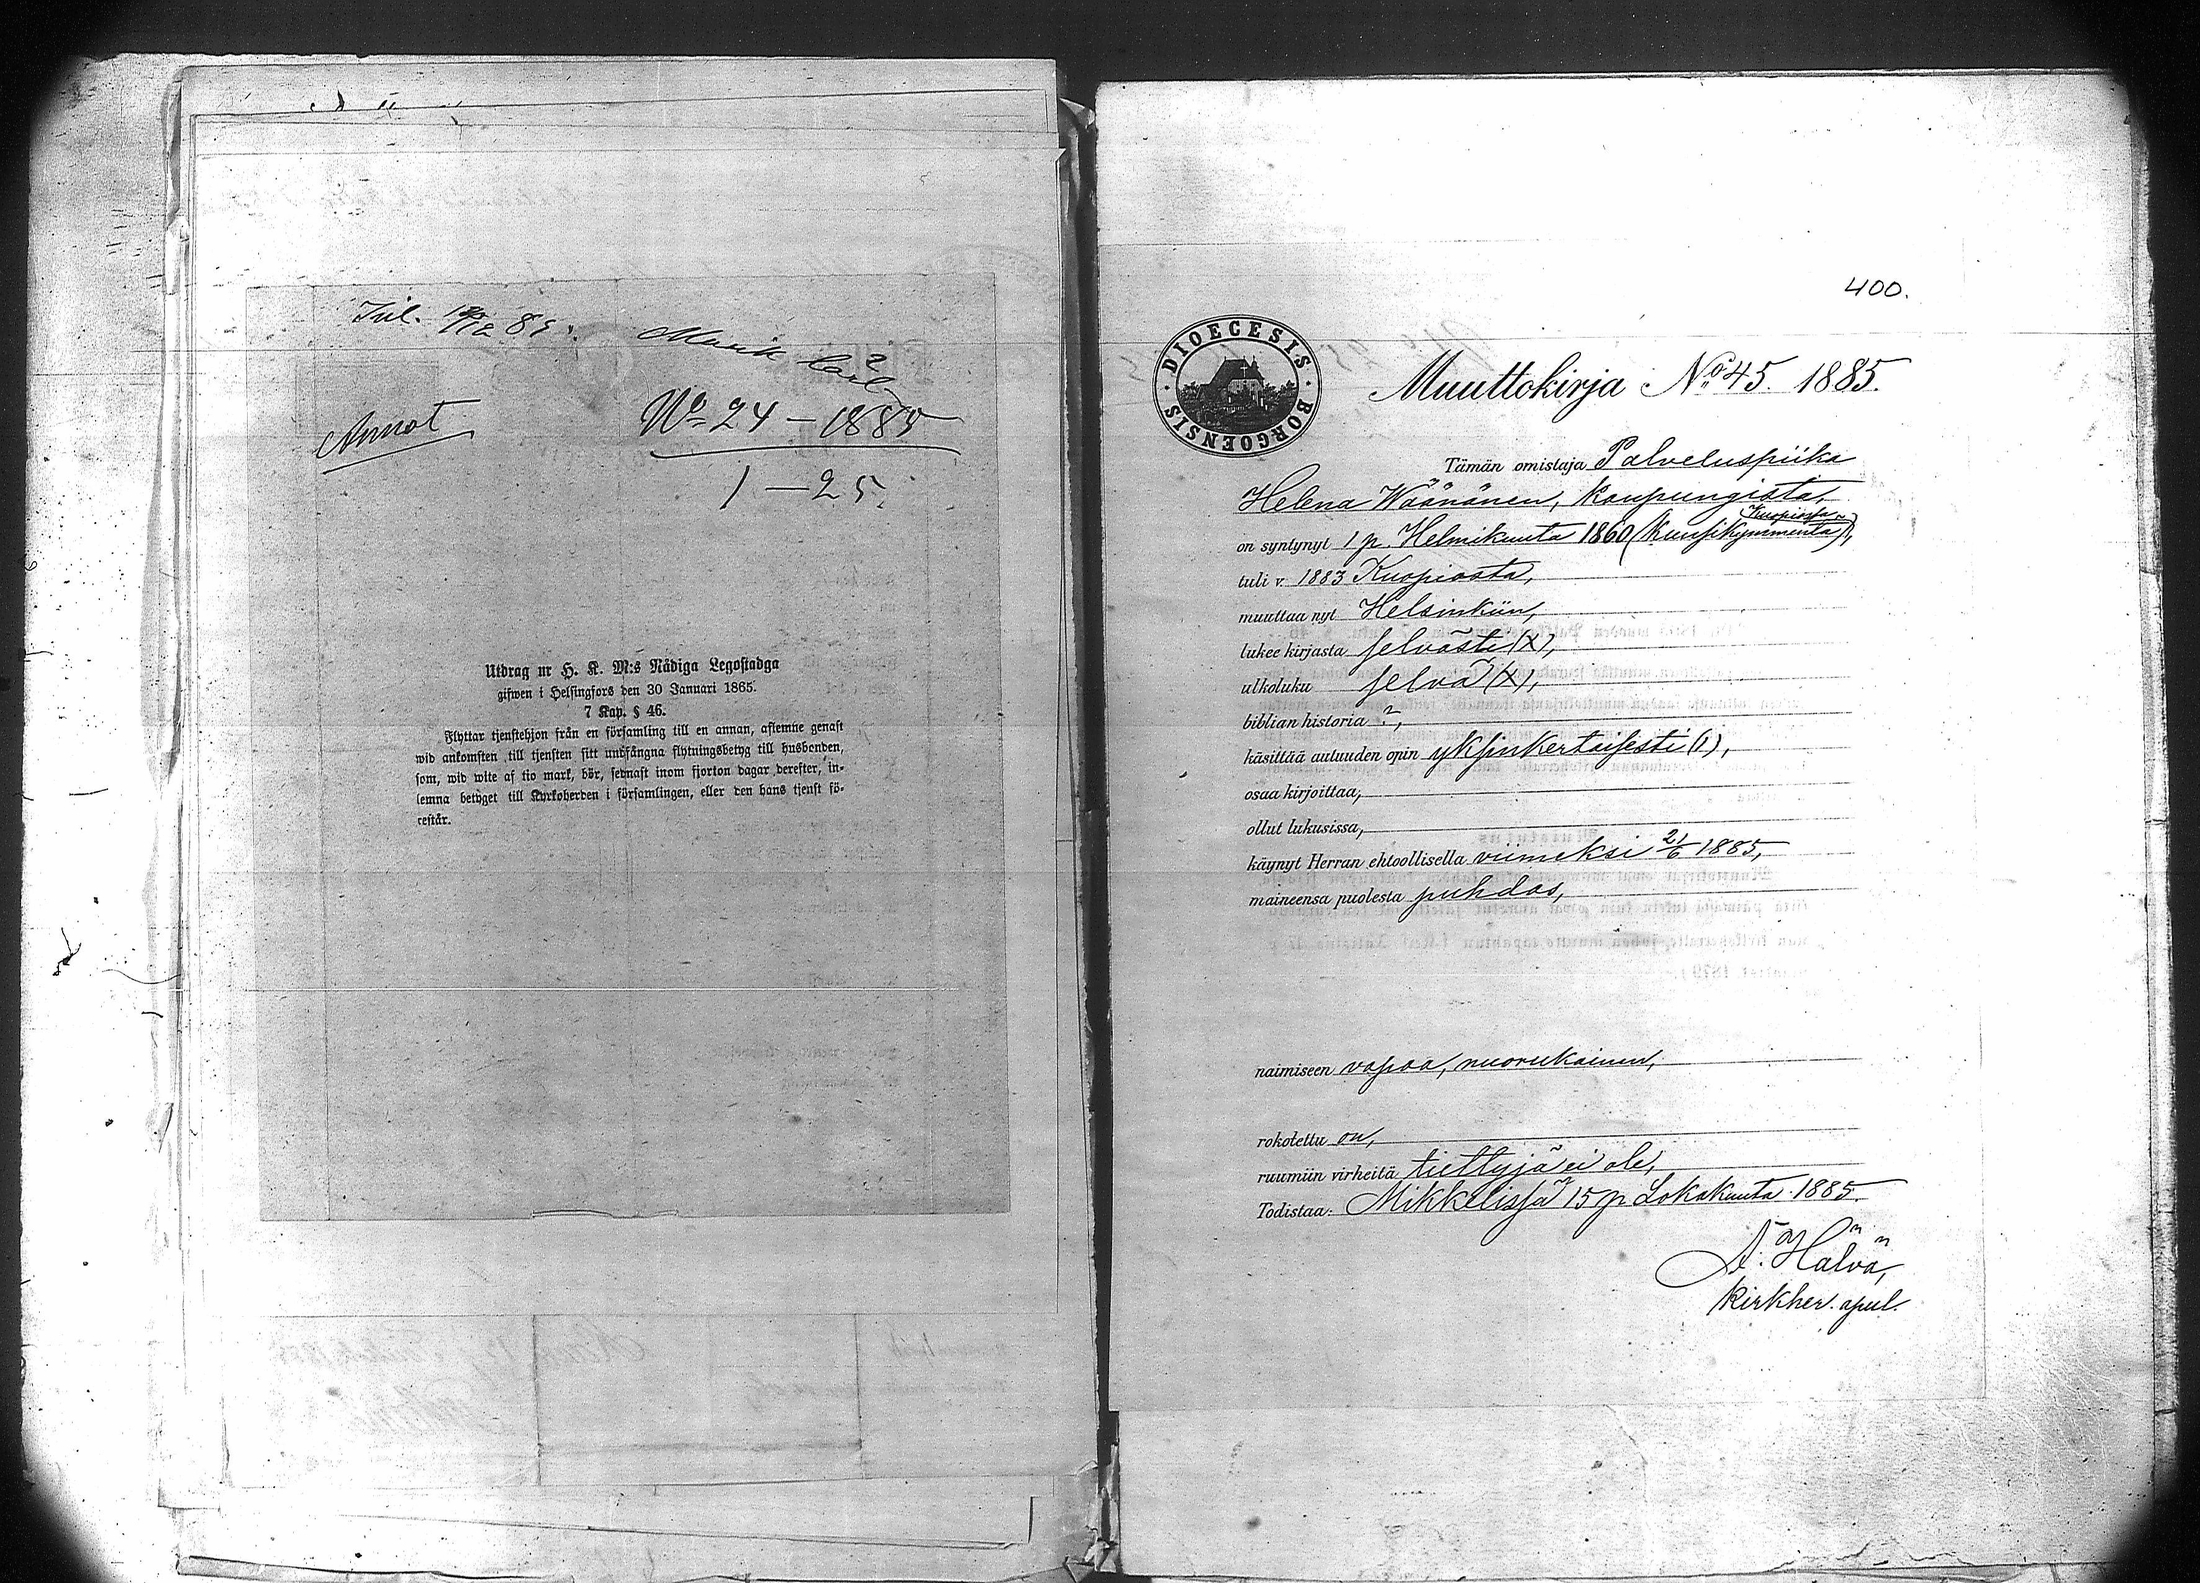 Inl. 12/12 85.
Annot
No 24 – 1885
1 – 25.
Utdrag ur H. K. M:s Nådiga Legostadga
gifwen i Helsingfors den 30 Januari 1865.
7 Kap. § 46.
Flyttar tjenstehjon från en församling till en annan, aflemne genast
wid ankomsten till tjensten sitt undfångna flytningsbetyg till husbonden,
som, wid wite af tio mark, bör, sednast inom fjorton dagar derefter, in-
lemna betyget till Kyrkoherden i församlingen, eller den hans tjenst fö-
restår.
400.
DIOECESIS BORGOENSIS
Muuttokirja No 45. 1885.
Tämän omistaja Palveluspiika
Helena Wäänänen, kaupungista,
Kuopiosta
on syntynyt 1 p. Helmikuuta 1860 (kuusikymmentä),
tuli v. 1883 Kuopiosta,
muuttaa nyt Helsinkiin,
lukee kirjasta selvästi (X),
ulkoluku selvä (X),
biblian historia ?,
käsittää autuuden opin yksinkertaisesti (1),
osaa kirjoittaa,
ollut lukusissa,
käynyt Herran ehtoollisella viimeksi 21/6 1885,
maineensa puolesta puhdas,
naimiseen vapaa, nuorukainen,
rokotettu on,
ruumiin virheitä tiettyjä ei ole,
Todistaa: Mikkelissä 15 p. Lokakuuta 1885.
A. Hälvä,
kirkher. apul.